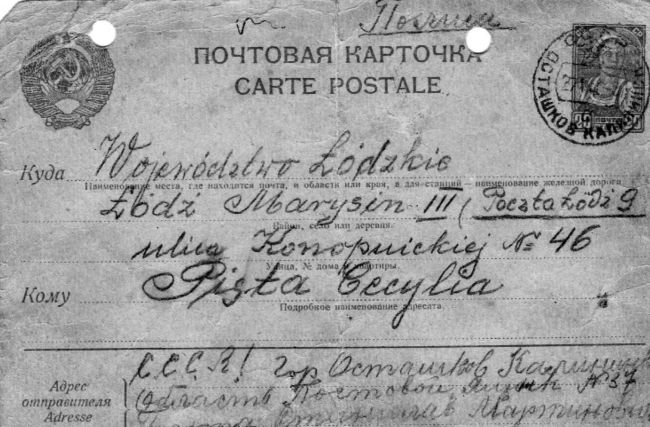 Польша
ПОЧТОВАЯ КАРТОЧКА
CARTE POSTALE
ОСТАШКОВ КАЛИНИН
ПОЧТА
Куда Województwo Łódzkie
Наименование места, где находится почта, и области или края, а для станций — наименование железной дороги
Łódź Marysin III (Poczta Łódź 9
Район, село или деревня.
ulica Konopnickiej № 46
Улица, № дома и квартиры.
Кому Pięta Cecylia
Подробное наименование адресата.
С.С.С.R! гор Осташков Калининск
Адрес отправителя область Постовой ящик № 37
Adresse Станислав Мартинович